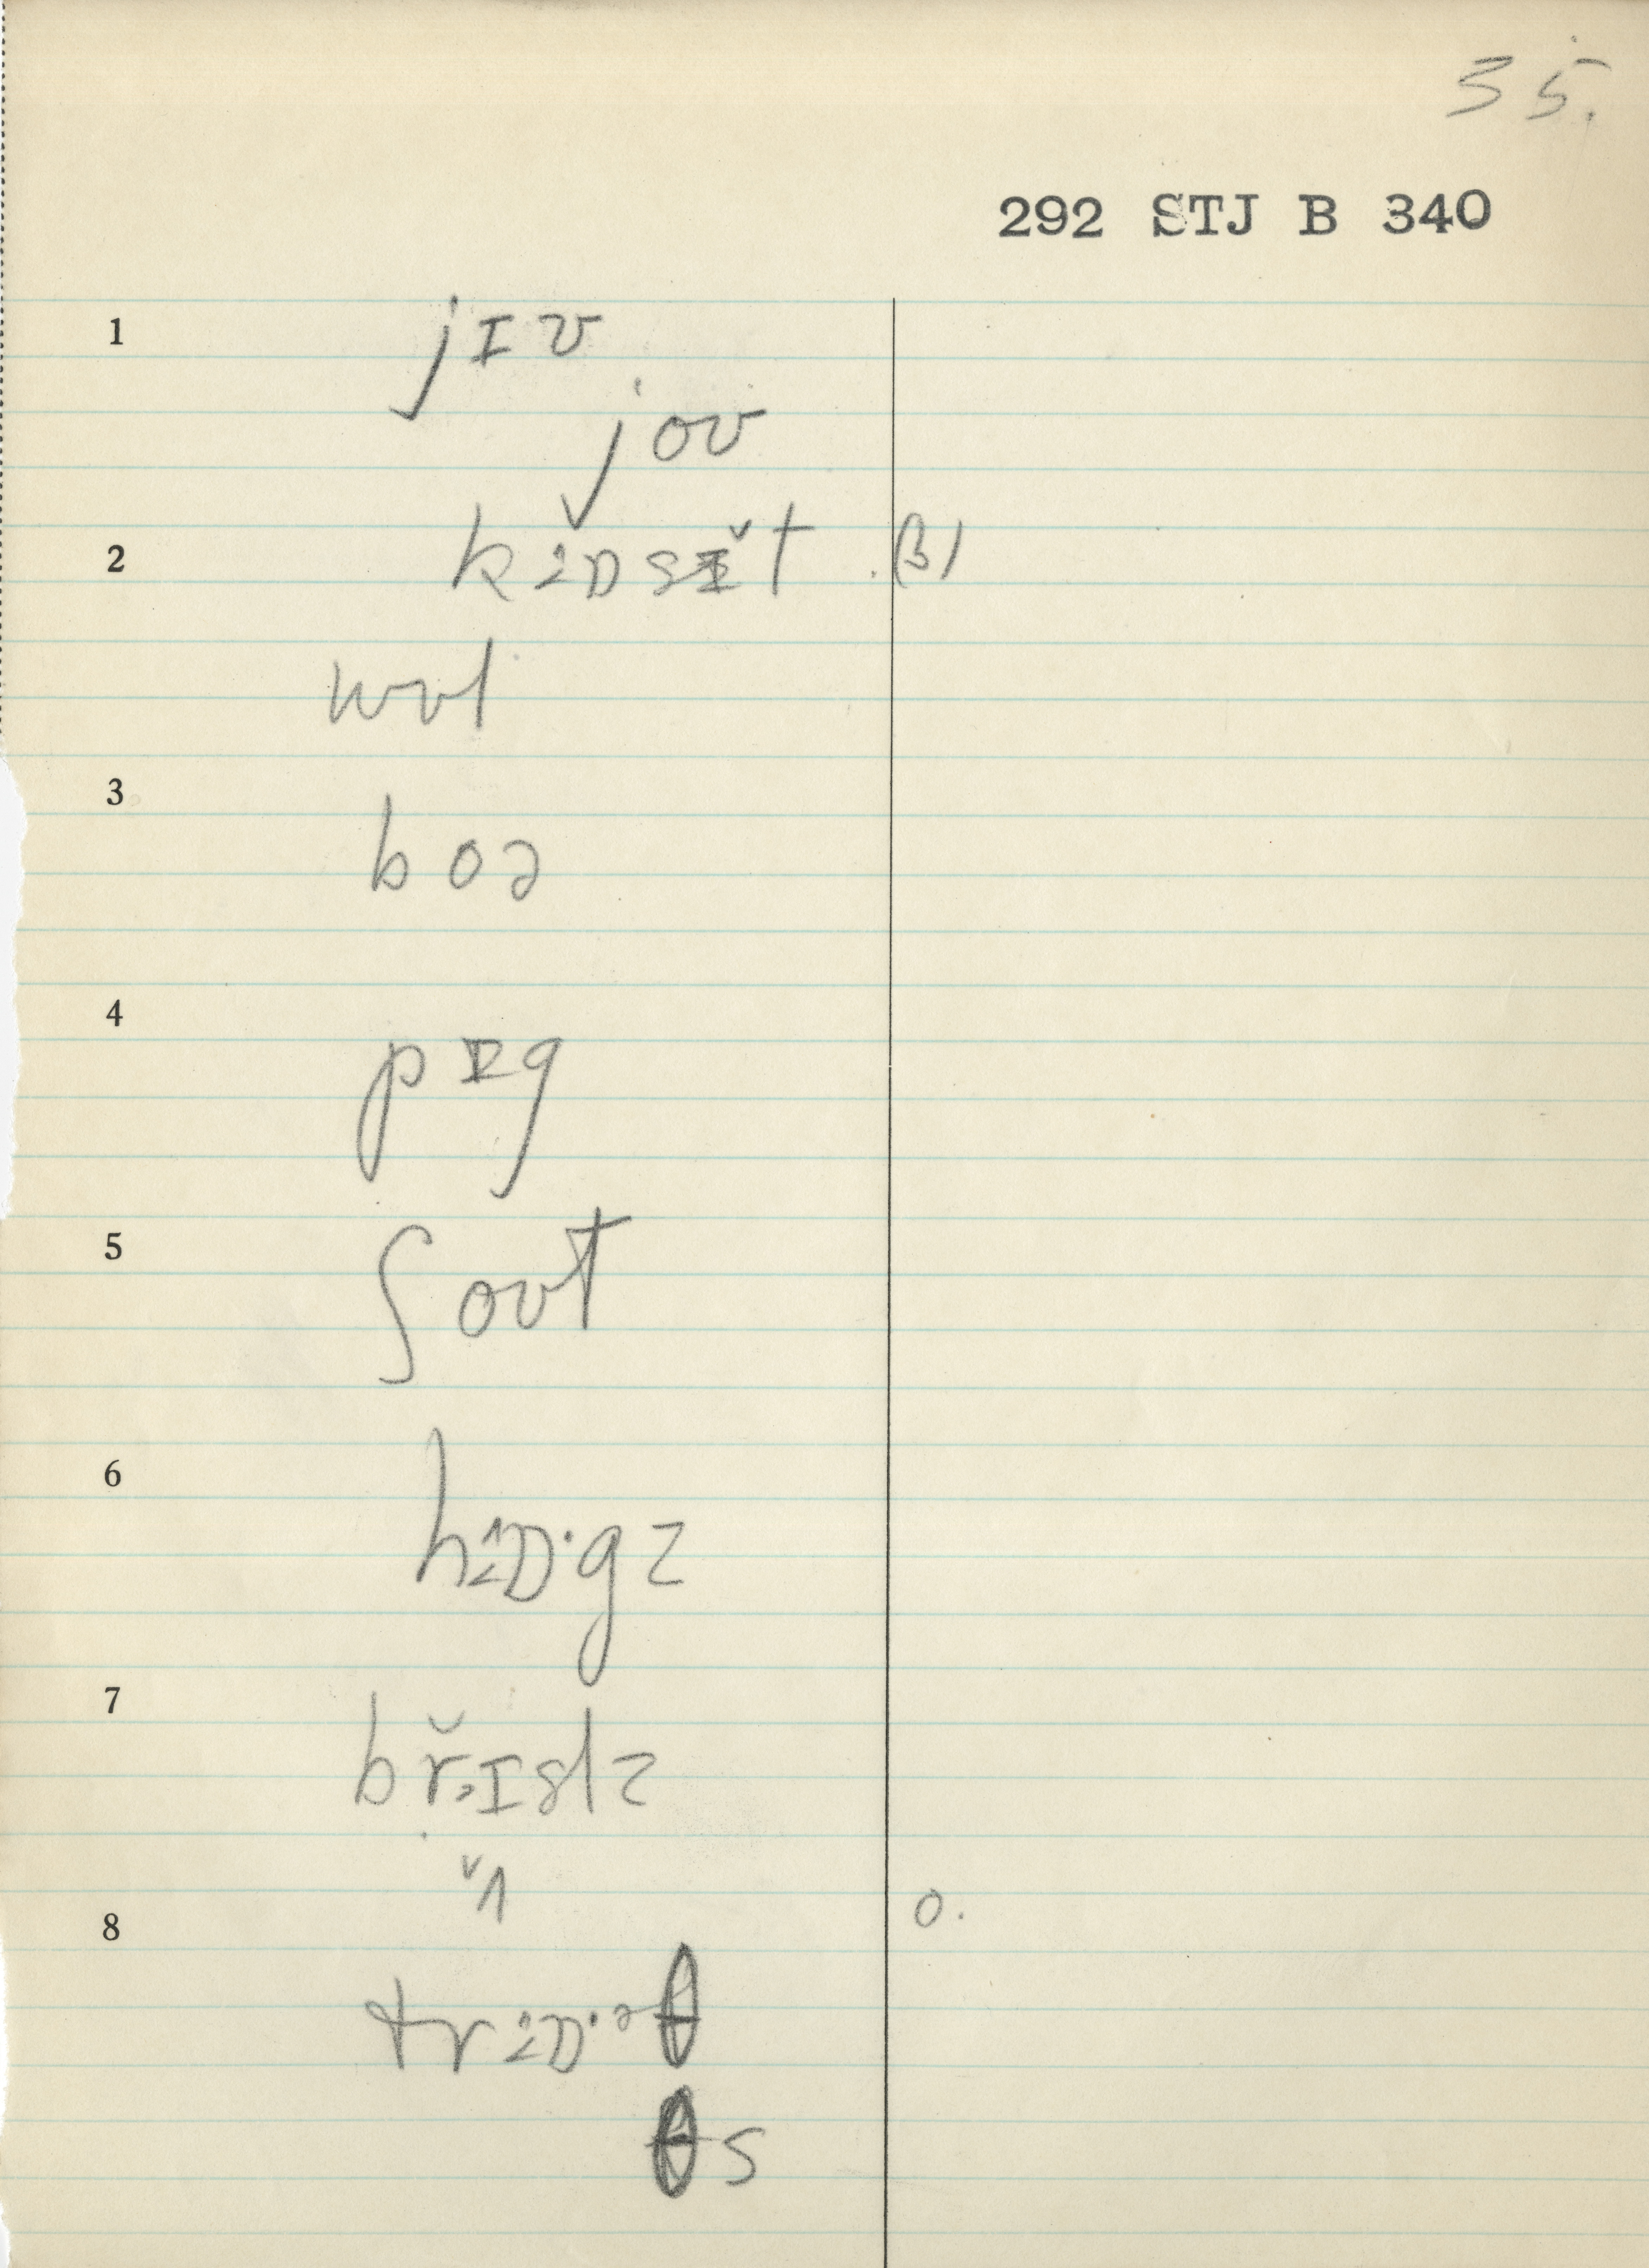 35.
292 STJ B 340
1 jɪʊ
joʊ
2 kɒsɪ̆t .(3)
wʊl
3 boə
4 pɪg
5 ʃoʊt
6 hɒ·gz
7 br̆ɪslz
ˇʌ
8 o.
trɒ·əθ
θs